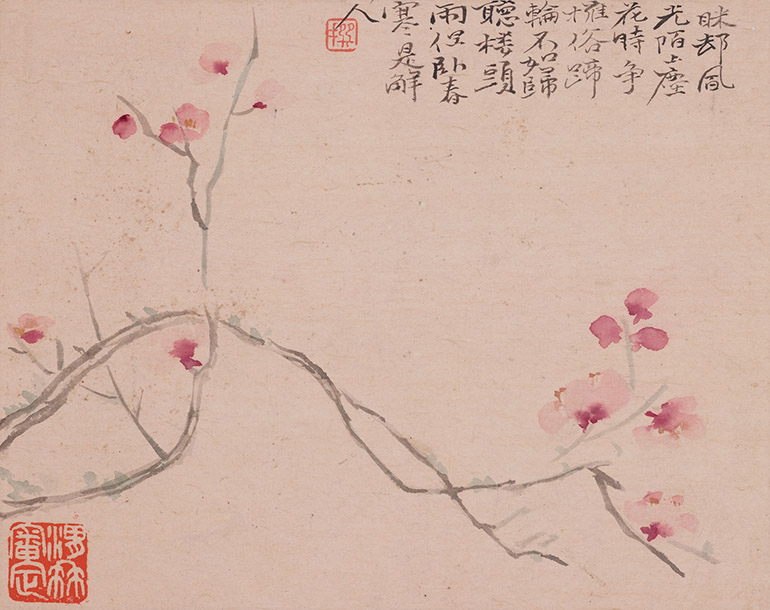 眯却風
光陌上塵
花時争
擁俗蹄
輪不如歸
聽樓頭
雨但臥春
寒是解
人